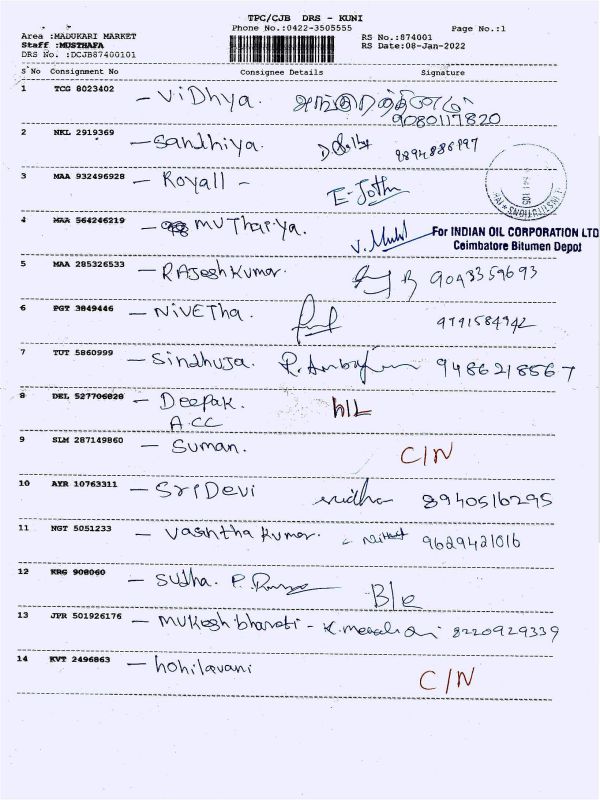 TPC/CJB DRS - KUNI
Phone No.:0422-3505555 Page No.:1
Area :MADUKARI MARKET RS No.:874001
Staff :MUSTHAFA RS Date:08-Jan-2022
DRS No. :DCJB87400101
S No Consignment No Consignee Details Signature
1 TCG 8023402 - Vidhya.
9080117820
2 NKL 2919369 - Sandhiya. 9894886997
3 MAA 932496928 - Royall - E-Jothi
4 MAA 564246219 - MUThaiya. V. Muthu
For INDIAN OIL CORPORATION LTD
Coimbatore Bitumen Depot
5 MAA 285326533 - RAjesh Kumar. 9043359693
6 PGT 3849446 - NiVETha. 9791584942
7 TUT 5860999 - Sindhuja. 9486218567
8 DEL 527706828 - Deepak.
A.CC
9 SLM 287149860 - Suman. C/N
10 AYR 10763311 - SriDevi sudha 8940516295
11 NGT 5051233 - Vasntha Kumar. 9629421016
12 KRG 908060 - Sudha.
13 JPR 501926176 - Mukesh bharati - 8220929339
14 KVT 2496863 - hohilavani C/N